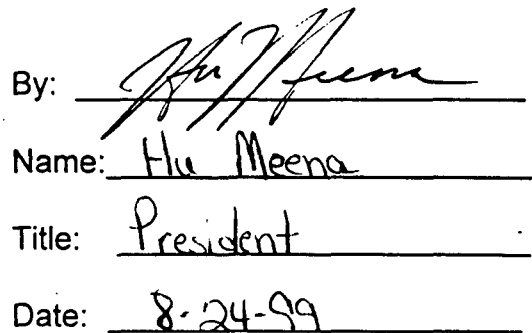 By: Hu Meena
Name: Hu Meena
Title: President
Date: 8-24-99